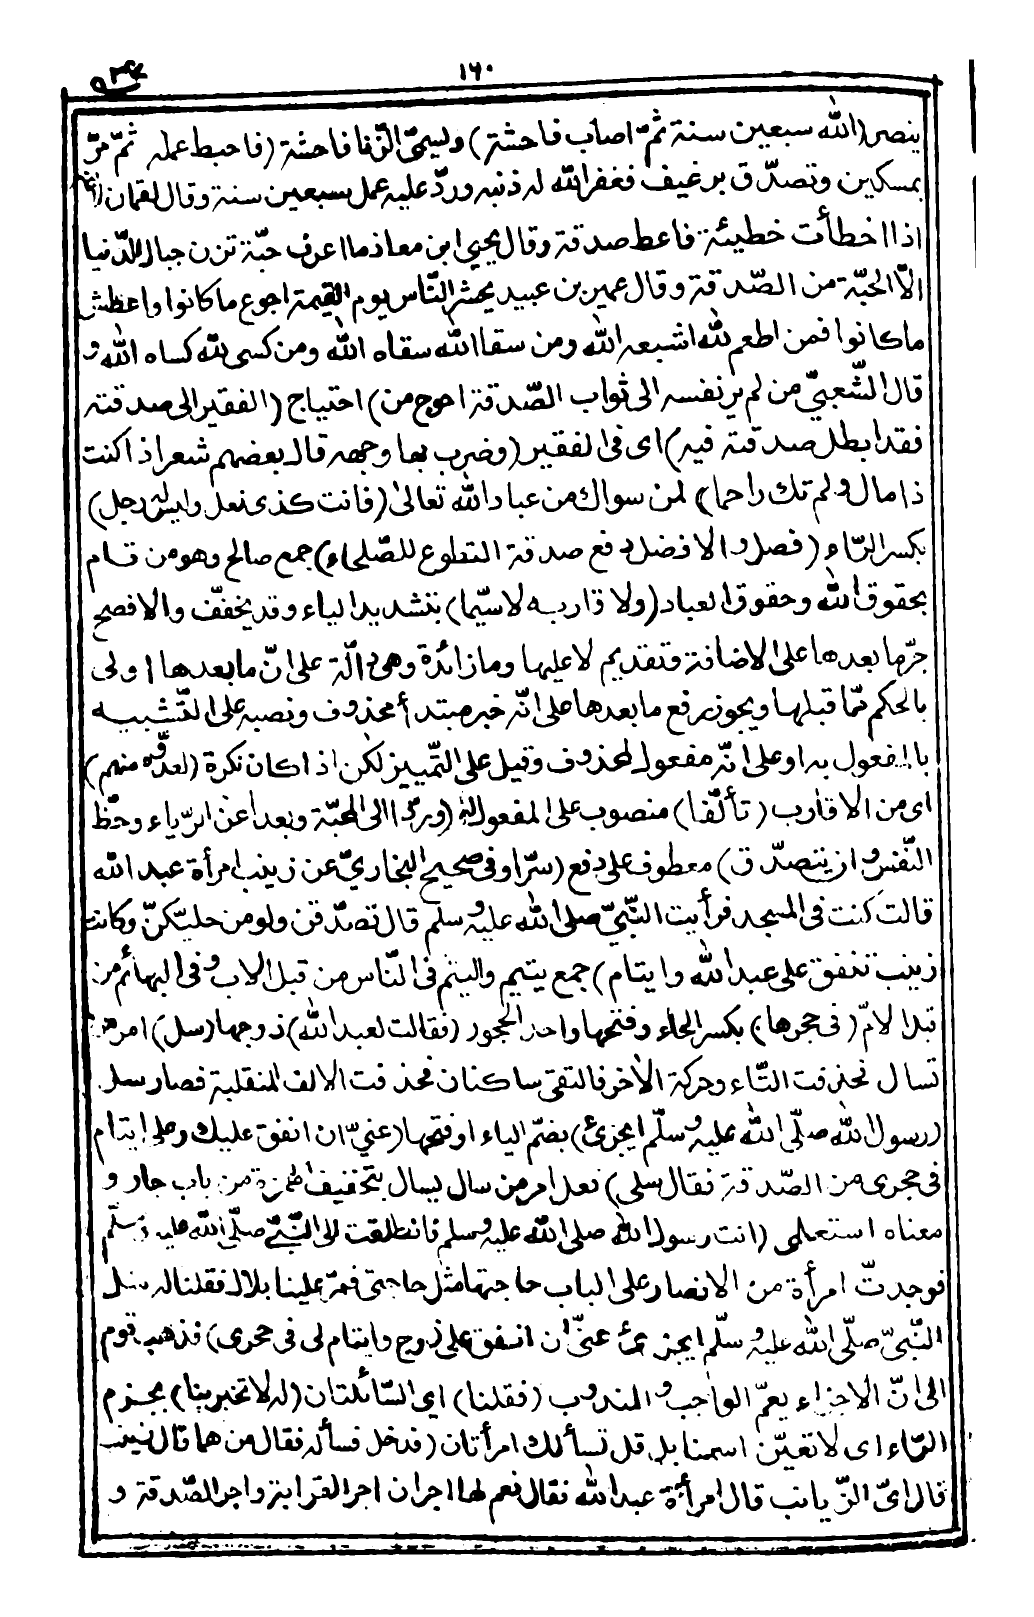 ١٦٠
ينصر (الله سبعين سنة ثمّ اصاب فاحشة) وليسمىّ الزّنا فاحشة (فاحبط عمله ثمّ مرّ
بمسكين وتصدّق برغيف فغفر الله له ذنبه وردّ عليه عمل سبعين سنة وقال لقمان
اذا اخطأت خطيئة فاعط صدقة وقال يحيى ابن معاذ ما اعرف حبّة تزن جبال الدّنيا
الّا الحبّة من الصّدقة وقال عمير بن عبيد يحشر النّاس يوم القيمة اجوع ما كانوا واعطش
ما كانوا فمن اطعم لله اشبعه الله ومن سقا الله سقاه الله ومن كسى لله كساه الله و
قال الشّعبيّ من لم ير نفسه الى ثواب الصّدقة احوج من) احتياج (الفقير الى صدقته
فقد ابطل صدقته فيه) اى فى الفقير (وضرب بها وجهه قال بعضهم شعر اذا كنت
ذا مال ولم تك راحما) لمن سواك من عباد الله تعالى (فانت كذى نعل وليس له رجل)
بكسر الرّاء (فصل والافضل دفع صدقة التطوع للصّلحاء) جمع صالح وهو من قام
بحقوق الله وحقوق العباد (ولاقاربه لاسيّما) بتشديد الياء وقد يخفّف والافصح
جرّ ما بعدها على الاضافة وتقديم لا عليها وما زائدة وهى دالّة على انّ ما بعدها اولى
بالحكم ممّا قبلها ويجوز رفع ما بعدها على انّه خبر مبتدأ محذوف ونصبه على التّشبيه
بالمفعول به او على انّه مفعول لمحذوف وقيل على التّمييز لكن اذا كان نكرة (لعدوّه منهم)
اى من الاقارب (تألّفا) منصوب على المفعول له (وردّا الى المحبّة وبعدا عن الرّياء وحظّ
النّفس وان يتصدّق) معطوف على دفع (سرّا وفى صحيح البخاريّ عن زينب امرأة عبد الله
قالت كنت فى المسجد فرأيت النّبيّ صلى الله عليه وسلم قال تصدّقن ولو من حليّكنّ وكانت
زينب تنفق على عبد الله وايتام) جمع يتيم واليتم فى النّاس من قبل الاب وفى البهائم من
قبل الامّ (فى حجرها) بكسر الحاء وفتحها واحد الحجور (فقالت لعبد الله) زوجها (سل) امر من
تسال فحذفت التّاء وحركة الآخر فالتقى ساكنان فحذفت الالف المنقلبة فصار سل
(رسول الله صلّى الله عليه وسلّم ايجزئ) بضمّ الياء او فتحها (عنيّ ان انفق عليك وعلى ايتام
فى حجرى من الصّدقة فقال سلى) فعل امر من سال يسال بتخفيف الهمزة من باب جار و
معناه استعلمى (انت رسول الله صلى الله عليه وسلم فانطلقت الى النّبيّ صلّى الله عليه وسلّم
فوجدتّ امرأة من الانصار على الباب حاجتها مثل حاجتى فمرّ علينا بلال فقلنا له سل
النّبيّ صلّى الله عليه وسلّم ايجزئ عنّى ان انفق على زوج وايتام لى فى حجرى) فذهب قوم
الى انّ الاجزاء يعمّ الواجب والمندوب (فقلنا) اى السّائلتان (له لا تخبر بنا) بجزم
الرّاء اى لا تعيّن اسمنا بل قل تسألك امرأتان (فدخل فسأله فقال من هما قال زينب
قال اىّ الزّيانب قال امرأة عبد الله فقال نعم لها اجران اجر القرابة واجر الصّدقة و